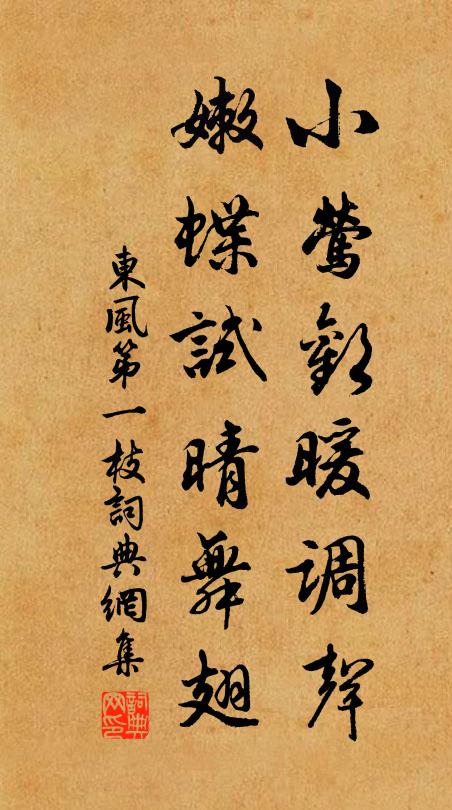 小鶯歡暖調聲
嫩蝶試晴舞翅
東風第一枝詞典網集
詞典网印